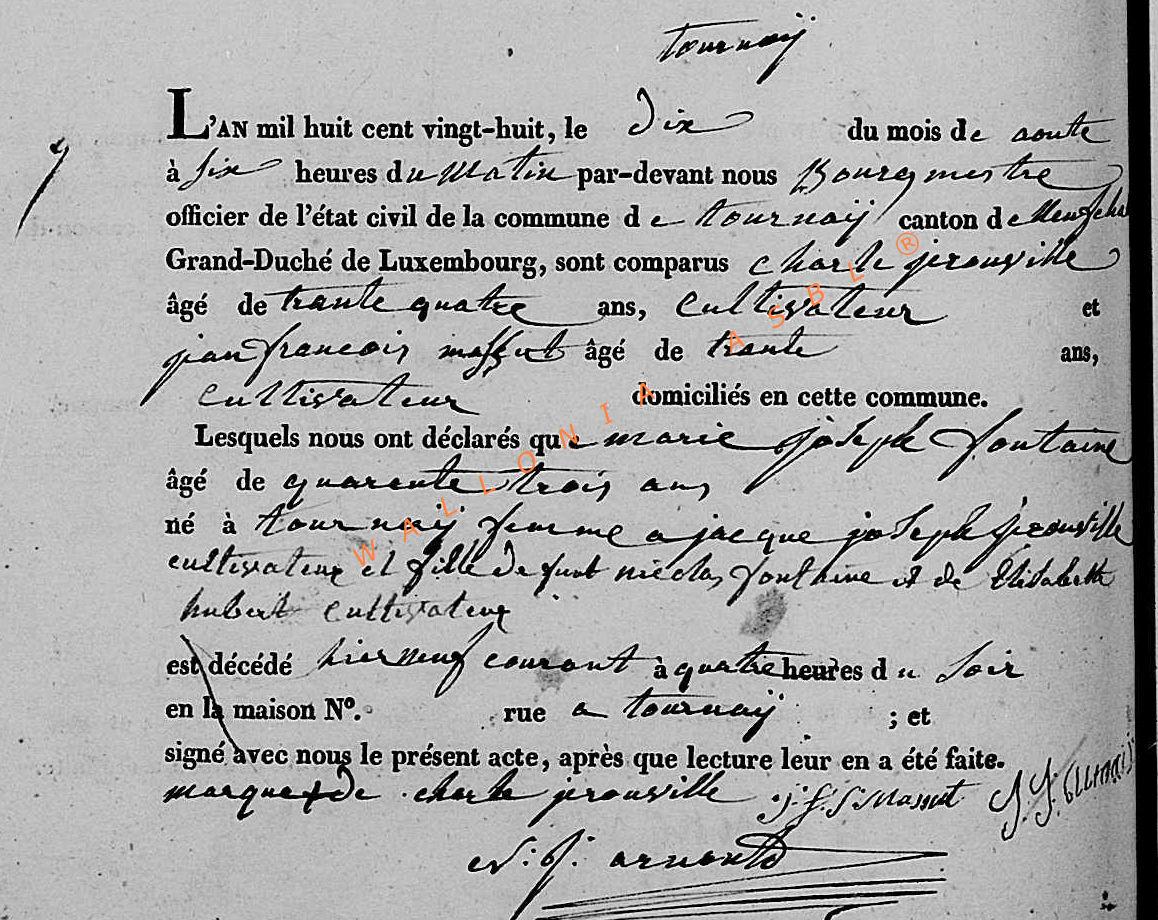 tournaÿ
L'AN mil huit cent vingt-huit, le dix du mois de aoute
à six heures du matin par-devant nous Bourgmestre
officier de l'état civil de la commune de tournaÿ canton de Neufcha
Grand-Duché de Luxembourg, sont comparus charle jerouville
âgé de trante quatre ans, cultivateur et
jean francois massut âgé de trante ans,
cultivateur domiciliés en cette commune.
Lesquels nous ont déclarés que marie joseph fontaine
âgé de quarente trois ans
né à tournaÿ femme a jacque joseph jerouville
cultivateur et fille de furt nicolas fonthaine et de Elisabette
hubert cultivateur
est décédé hier neuf courant à quatre heures du soir
en la maison N°. rue a tournaÿ ; et
signé avec nous le présent acte, après que lecture leur en a été faite.
marque + de charle jerouville J. F. S. Massut
N: J: arnould
WALLONIA ASBL ®